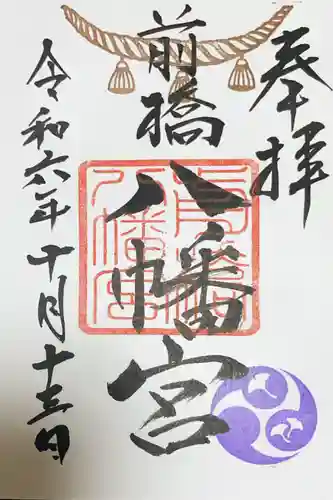 奉拝
前橋
八幡宮
令和六年十月十三日
前橋
八幡宮